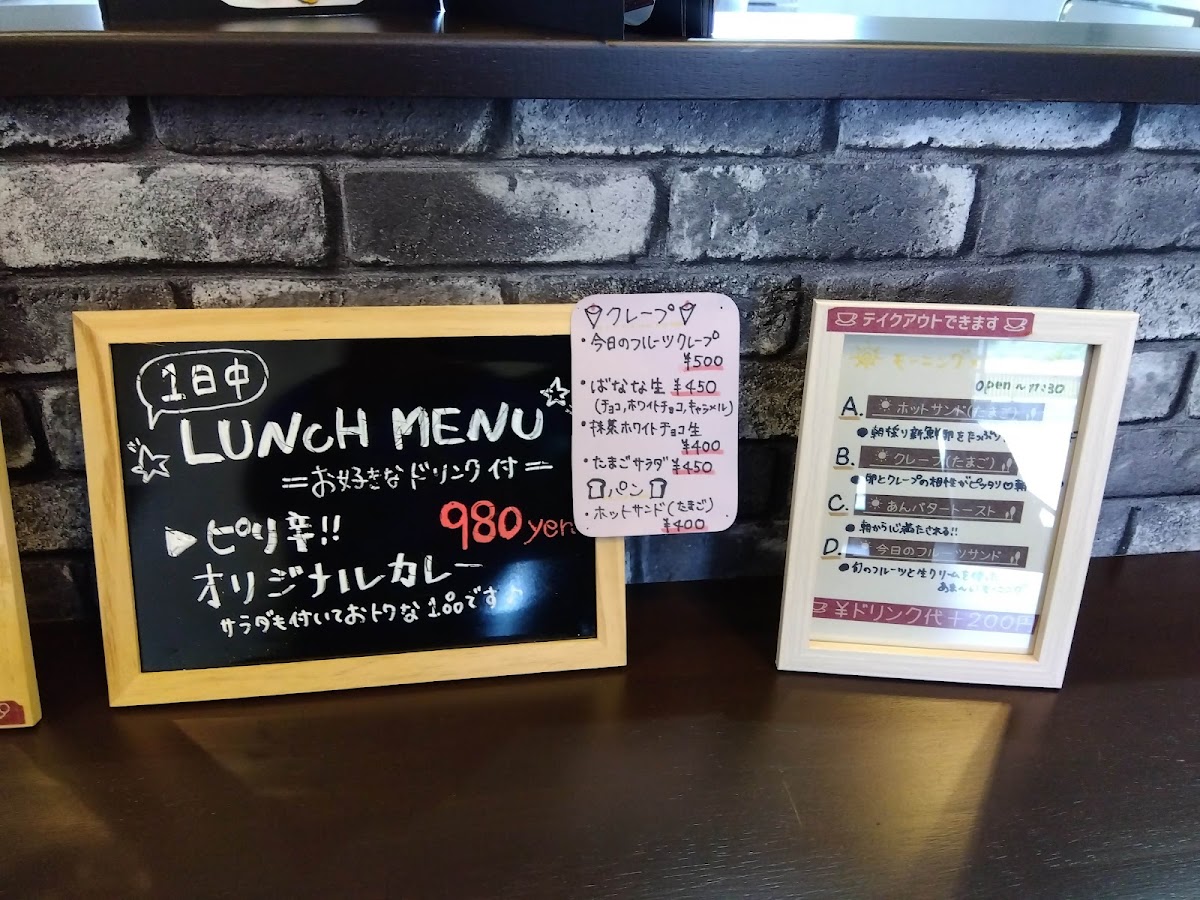 1日中
LUNCH MENU
=お好きなドリンク付=
980yen
▶ピリ辛!!
オリジナルカレー
サラダも付いておトクな1品です♪
クレープ
・今日のフルーツクレープ
¥500
・ばなな生 ¥450
(チョコ,ホワイトチョコ,キャラメル)
・抹茶ホワイトチョコ生
¥400
・たまごサラダ ¥450
パン
・ホットサンド(たまご)
¥400
テイクアウトできます
モーニング
open~11:30
A. ホットサンド(たまご)
●朝採り新鮮卵をたっぷり
B. クレープ(たまご)
●卵とクレープの相性がピッタリ♡
C. あんバタートースト
●朝から心満たされる!!
D. 今日のフルーツサンド
●旬のフルーツと生クリームを使った
あま〜いモーニング
¥ドリンク代+200円